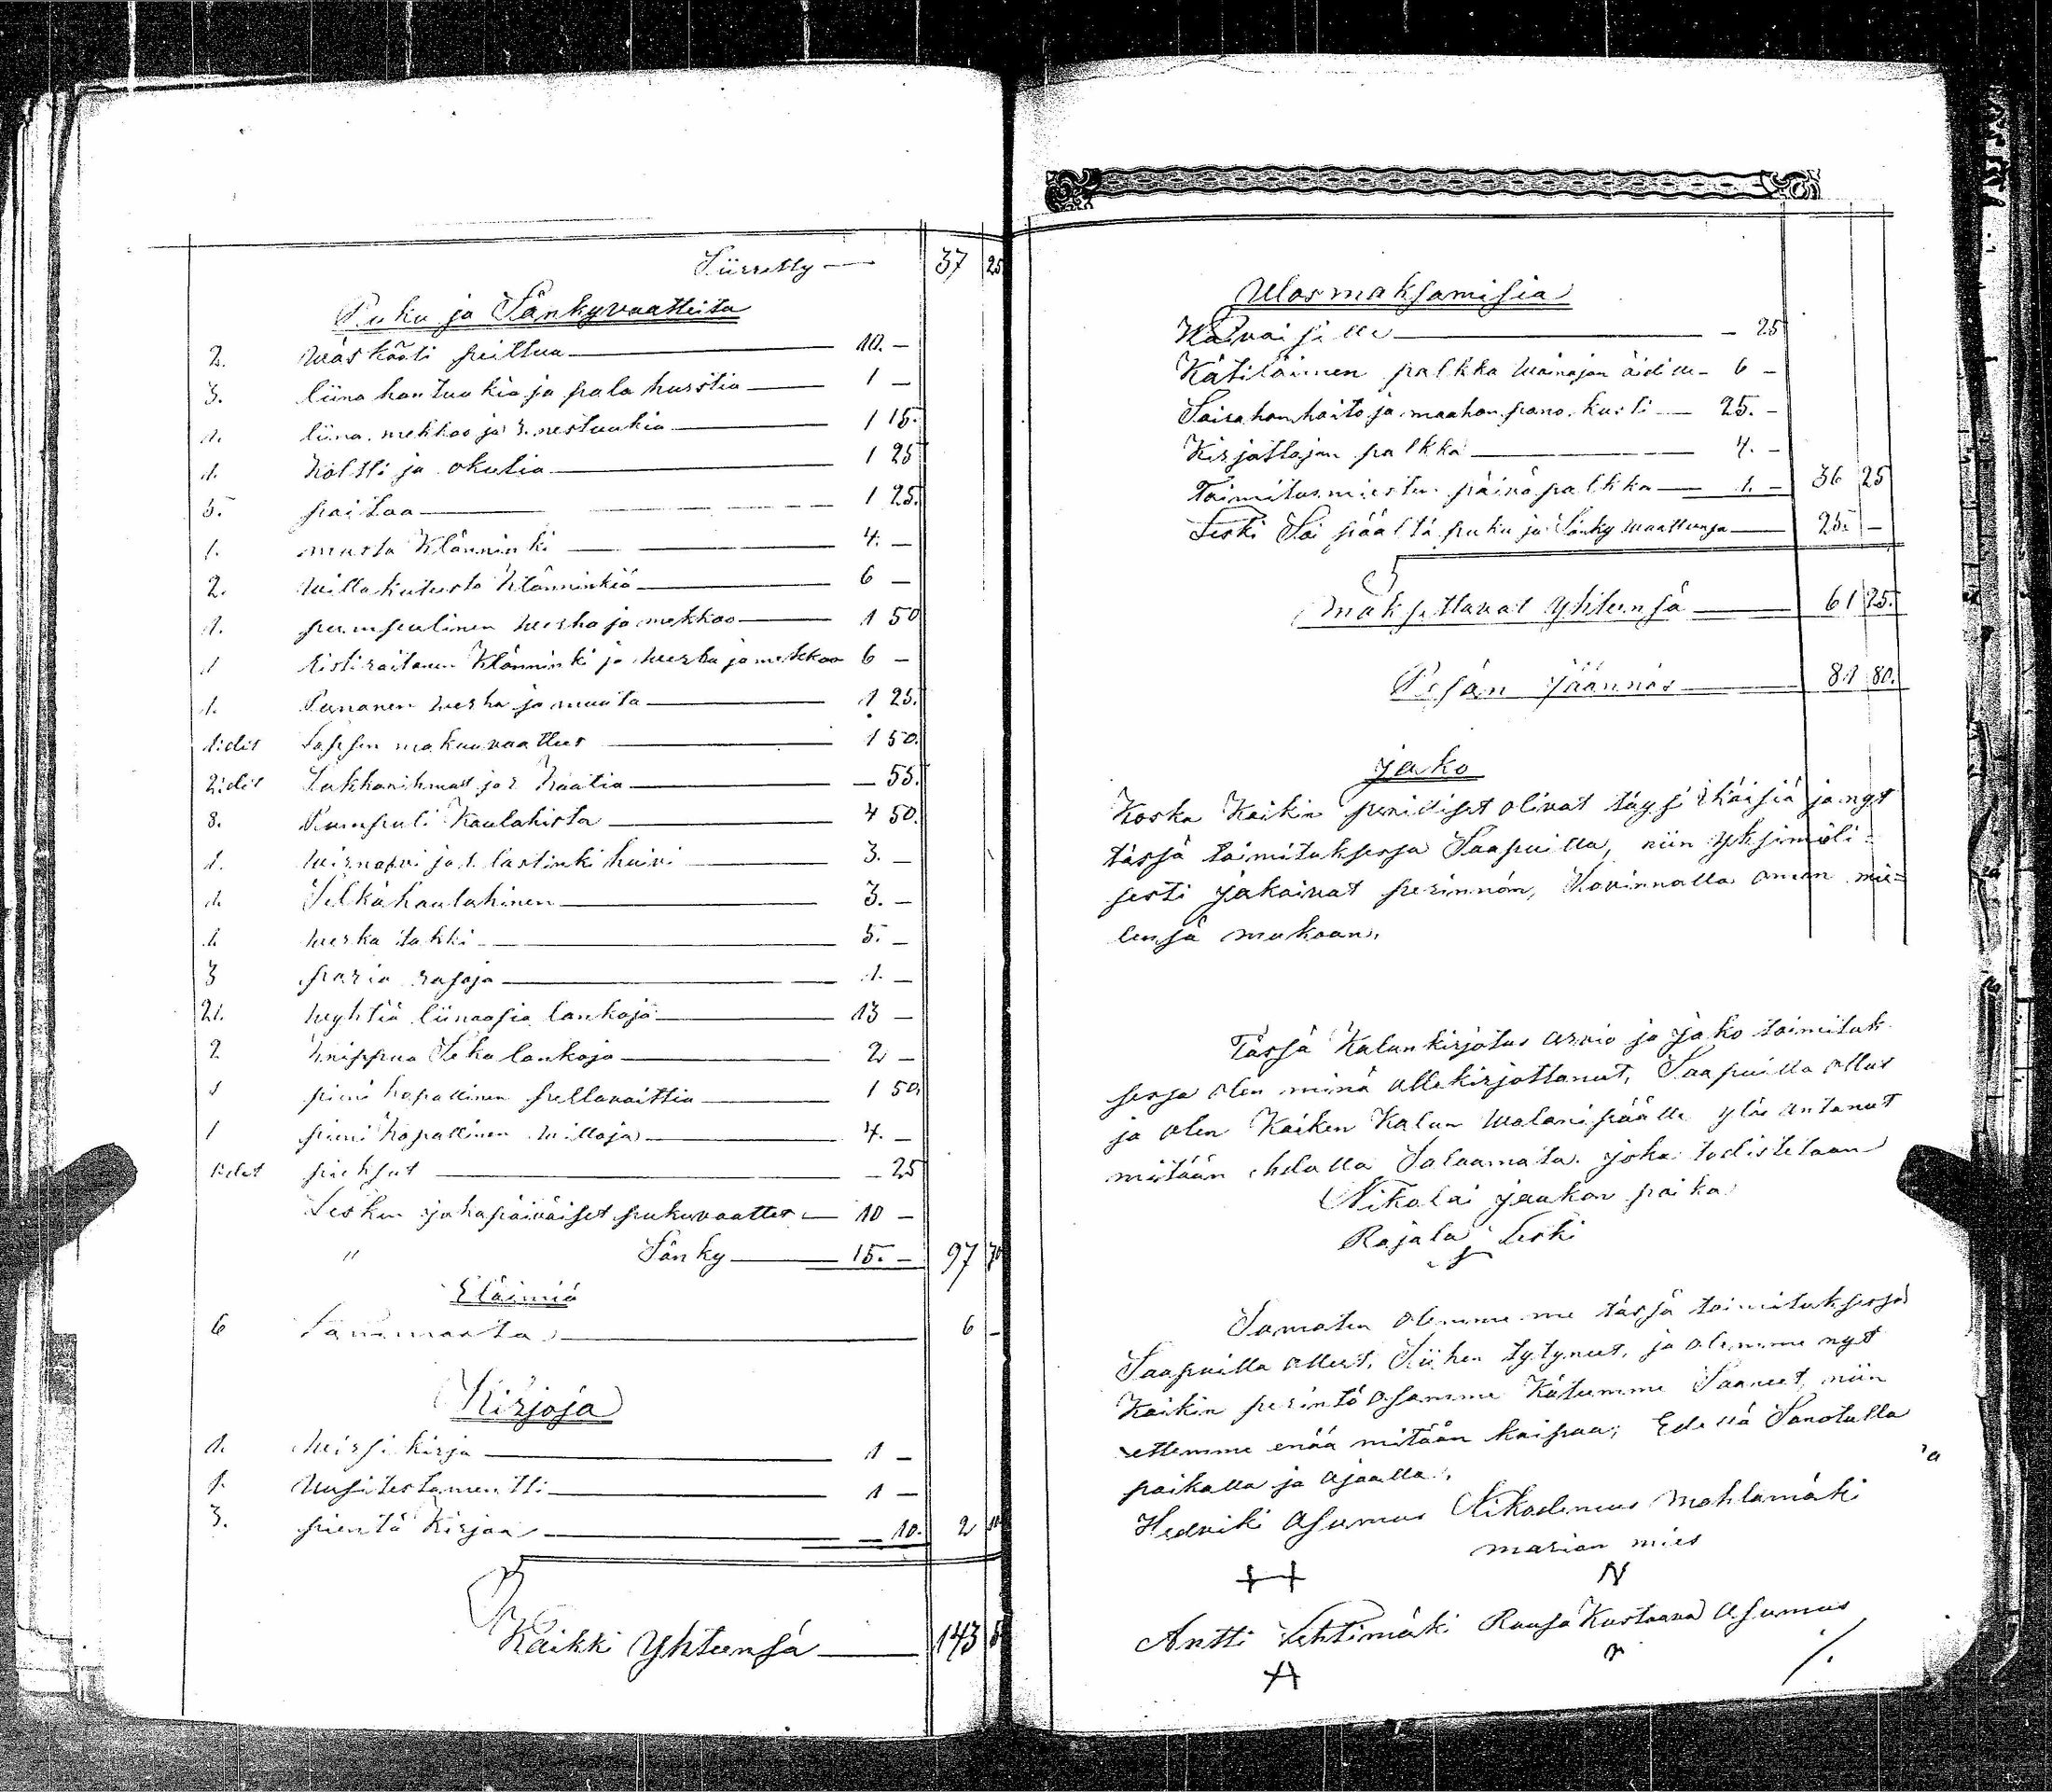 Siirretty — 37 25
Puku ja Sänkyvaatteita
2. wäskööti peittua — 10. —
3. liina hantuukia ja pala hurstia — 1 —
1. liina mekkoo ja nestuukia — 1 15.
1. Koltti ja — 1 25
5. paitaa — 1 25.
1. musta Klänninki — 4. —
2. willakuteista Klänninkiä — 6 —
1. pumpulinen werka ja mekkoo — 1 50
1 ristiraitanen Klänninki ja werka ja mekkoo 6 —
1. Punanen werka ja muuta — 1 25.
1idit Lapsen makuuvaatteet — 1 50.
2idit Sukkarihmat ja 2 — 55.
8. Pumpuli Kaulahista — 4 50.
1. ja 1. lastinki huivi — 3. —
1. Silkkikaulahinen — 3. —
1. werka takki — 5. —
3 paria — 1. —
21. wyhtiä liinaasia lankoja — 13 —
2 Knippua Seka lankoja — 2 —
1 pieni kopallinen pellavaittia — 1 50.
1 pieni kopallinen willoja — 4. —
1idet pieksut — 25
Lesken jokapäiväiset pukuvaattet — 10 —
" Sänky — 15. — 97 70
Eläimiä
6 Lammasta — 6 —
Kirjoja
1. wirsi kirja — 1 —
1. Uusitestamentti — 1 —
3. pientä Kirjaa — 10. 2 10
Kaikki yhteensä — 143 5
Ulosmaksamisia
Waivaisille — 25
Kätiläinen palkka Wainajan äidille — 6 —
Sairahan hoito ja maahan pano kusti — 25. —
Kirjottajan palkka — 4. —
Toimitusmiesten päivä palkka — 1. — 36 25
Leski Sai päältä puku ja Sänky waattensa — 25. —
maksettavat yhteensä — 61 25.
Pesän jäännös — 81 80.
jako
Koska Kaikin perilliset olivat täysi ikäisiä ja nyt
tässä toimituksessa Saapuilla, niin yksimieli=
sesti jakaivat perinnön, Kovinnolla oman mie=
lensä mukaan.
Tässä Kalunkirjotus arvio ja jako toimituk
sessa olen minä allekirjottanut, Saapuilla ollut
ja olen Kaiken Kalun Walani päälle ylös antanut
mitään ehdolla Salaamata. joka todistetaan
Nikolai jaakon poika
Rajala Leski
Samaten olemme me tässä toimituksessa
Saapuilla olleet, Siihen tytyneet, ja olemme nyt
Kaikin perintö osamme Kätemme Saaneet, niin
ettemme enää mitään kaipaa; Edellä Sanotulla
paikalla ja ajaalla.
Hedviki Asumus Nikodemus Mahlamäki
marian mies
H N
Antti Lehtimäki Kustaava Asumus
A